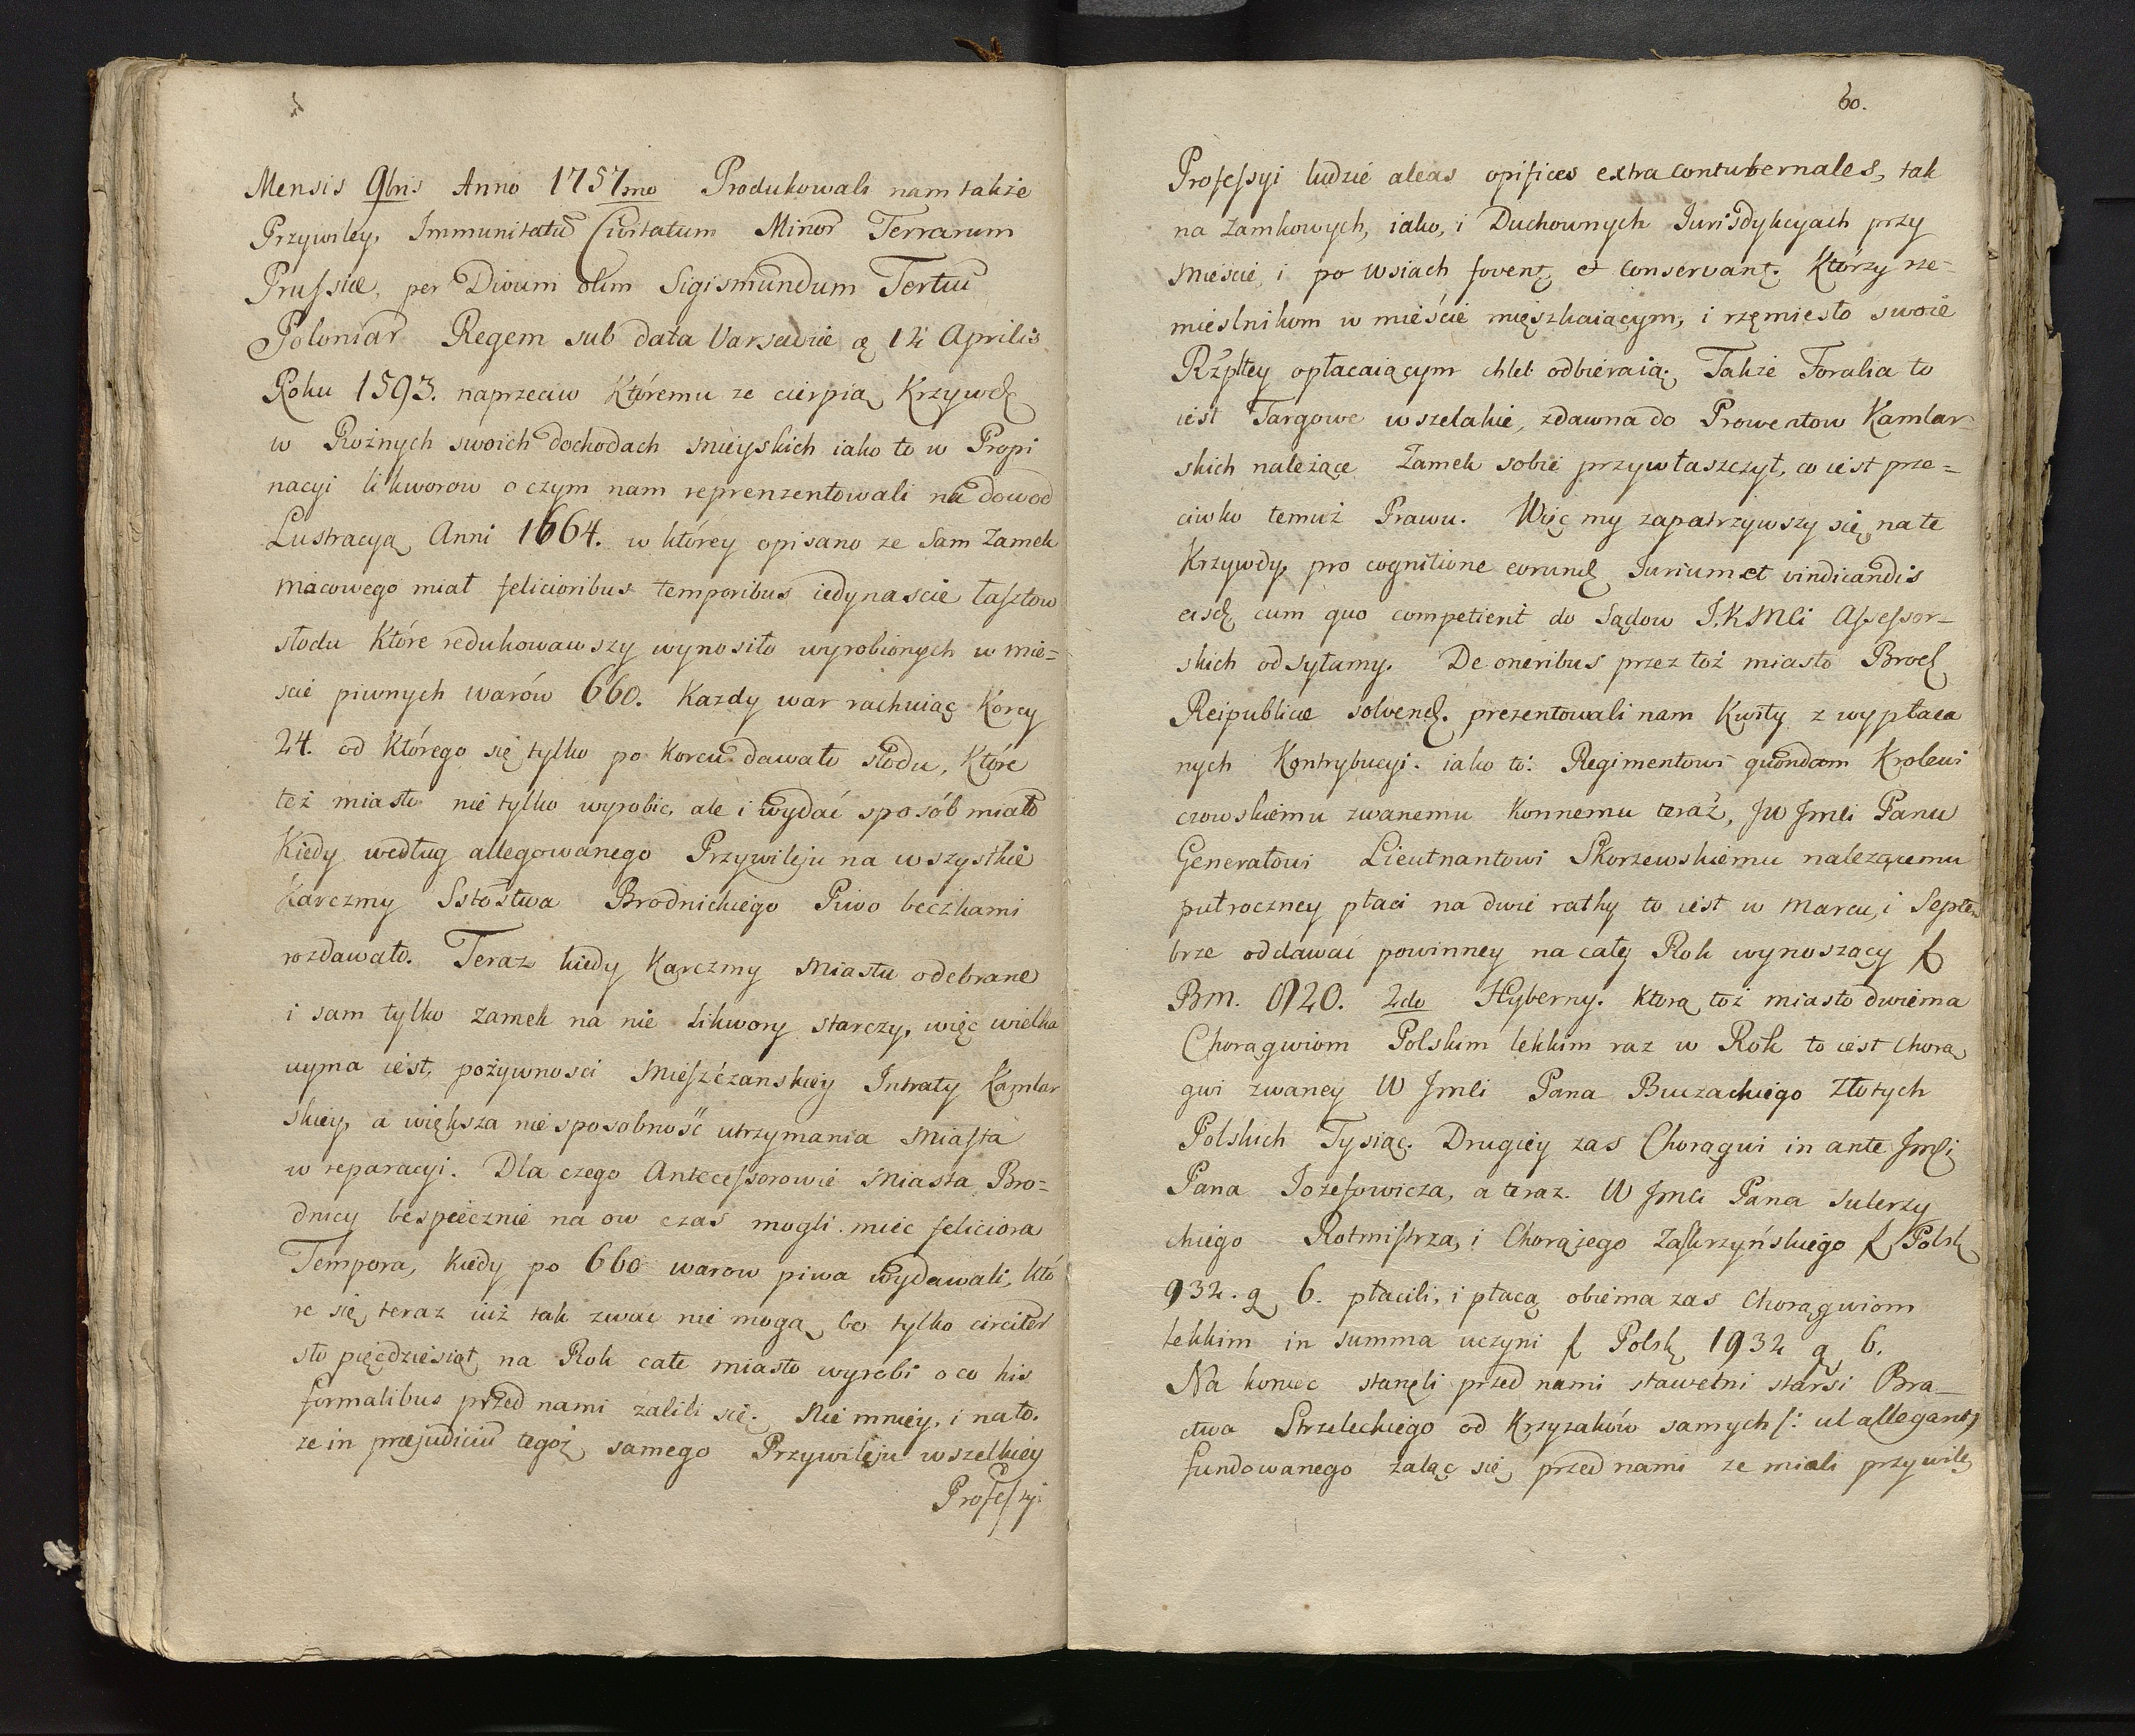 Mensis 9bris Anno 1757mo Produkowali nam także
Przywiley, Immunitatū Civitatum Minor Terrarum
Prussiæ, per Divum olim Sigismundum Tertiū
Poloniar Regem sub data Varsaviæ
Roku 1593. naprzeciw Któremu ze cierpią Krzywdę
w Rożnych swoich dochodach mieyskich iako to w Propi
nacyi likworow o czym nam reprenzentowali na dowod
Lustracyą Anni 1664. w którey opisano ze Sam Zamek
macowego miał felicioribus temporibus iedynascie łasztow
słodu Które redukowawszy wynosiło wyrobionych w mie=
scie piwnych warów 660. Kazdy war rachuiąc Korcy
24. od Którego się tylko po korcu dawało słodu, Które
też miasto nie tylko wyrobic, ale i wydać sposób miało
Kiedy według allegowanego Przywileju na wszystkie
Karczmy Sstostwa Brodnickiego Piwo beczkami
rozdawało. Teraz kiedy Karczmy Miastu odebrane
i sam tylko zamek na nie likwory starczy, więc wielka
uyma iest, pożywnosci Mieszczanskiey Intraty Kamlar
skiey, a większa nie sposobność utrzymania Miasta
w reparacyi. Dla czego Antecessorowie Miasta Bro=
dnicy bespiecznie na ow czas mogli miec feliciora
Tempora, kiedy po 660 warow piwa wydawali, któ
re się teraz iuż tak zwać nie mogą bo tylko circiter
sto pięcdziesiąt na Rok całe miasto wyrobi o co his
formalibus przed nami żalili się. Nie mniey, i na to.
ze in præjudiciū tegoż samego Przywileju wszelkiey
Professyi
60.
Professyi ludzie aleas opifices extra contubernales, tak
na Zamkowych, iako, i Duchownych Jurisdykcyach przy
Mieście, i po wsiach fovent, et conservant. Którzy rze=
mieslnikom w mieście mięszkaiącym, i rzęmiesło swoie
Rzpltey opłacaiącym chleb odbieraią. Także Foralia to
iest Targowe wszelakie, zdawna do Prowentow Kamlar=
skich należące Zamek sobie przywłaszczył, co iest prze=
ciwko temuż Prawu. Więc my zapatrzywszy się na te
Krzywdy, pro cognitione eorund Jurium et vindicandis
eisd cum quo competierit do Sądow J.K.Mci Assessor=
skich odsyłamy. De oneribus przez toż miasto Brod
Reipublicæ solvend. prezentowali nam Kwity z wypłaca
nych Kontrybucyi. iako to: Regimentowi quondam Krolewi
czowskiemu zwanemu konnemu teraz, JW Jmci Panu
Generałowi Lieutnantowi Skorzewskiemu nalezącemu
pułroczney płaci na dwie rathy to iest w Marcu, i Septem
brze oddawać powinney na cały Rok wynoszący f
Bm. 2do Hyberny. Którą toż miasto dwiema
Chorągwiom Polskim lekkim raz w Rok to iest Chorą
gwi zwaney W Jmci Pana Buczackiego Złotych
Polskich Tysiąc. Drugiey zas Chorągwi in ante Jmci
Pana Jozefowicza, a teraz. W Jmci Pana Sulerzy
ckiego Rotmistrza, i Chorążego Zaskrzyńskiego f Polsk
932. g 6. płacili, i płacą obiema zas Chorągwiom
lekkim in summa uczyni f Polsk 1932 g 6.
Na koniec stanęli przed nami sławetni starsi Bra=
ctwa Strzeleckiego od Krzyzaków samych /: ut allegant
fundowanego zaląc się przed nami ze mieli przywile